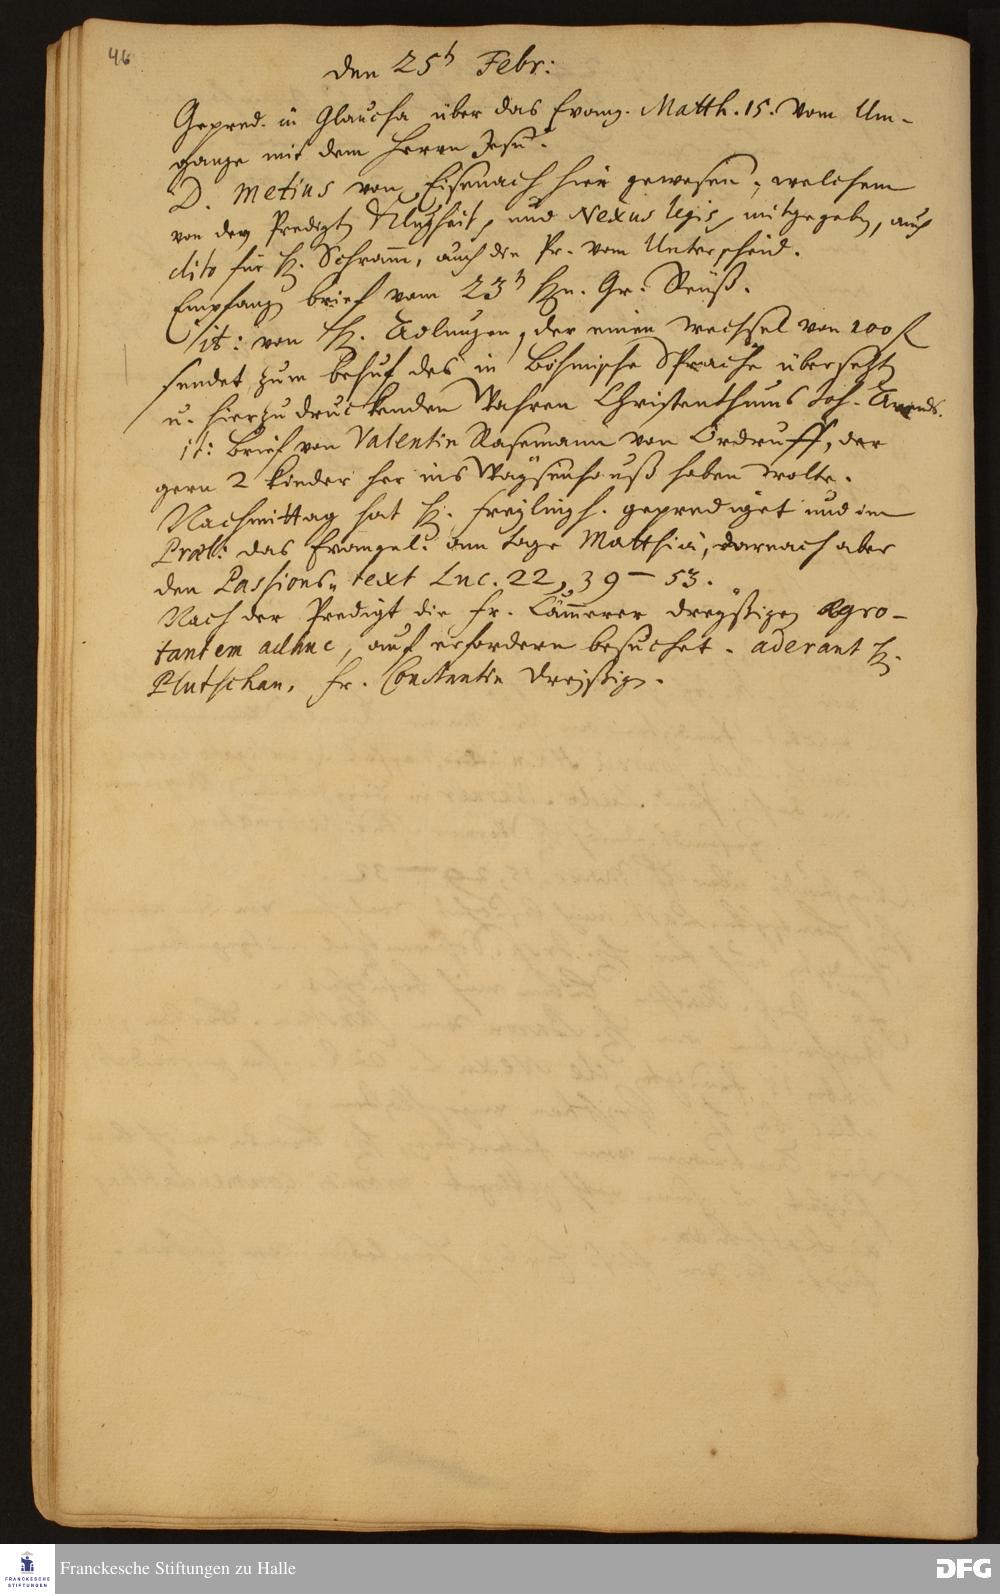 46
den 25t Febr:
Gepred. in Glaucha über das Evang. Matth. 15. vom Um-
gange mit dem Herrn Jesu.
D. Metius von Eisenach hier gewesen, welchem
von der Predigt Klugheit, und Nexus legis, mitgegeben, auch
dito für H. Schramm, auch die Pr. vom Unterscheid.
Empfang brief vom 23t Hn. Gr. Reuß.
it: von H. Adlungen, der einen wechsel von 200 fl
sendet zum behuf des in Böhmische Sprache übersetzt
u. hier zu druckenden Wahren Christenthums Joh. Arnds.
it: Brief von Valentin Rasemann von Ordruff, der
gern 2 kinder her ins Waysenhauß haben wolte.
Nachmittag hat H. Freylingh. geprediget und im
Præl: das Evangel. am tage Matthiä, darnach aber
den Passions-text Luc. 22, 39 - 53.
Nach der Predigt die Fr. Cämmerer Dreyßigen ægro-
tantem adhuc, auf erfordern besuchet. aderant H.
Plutschau, Fr. Constantin Dreyßigin.
Franckesche Stiftungen zu Halle
FRANCKESCHE
STIFTUNGEN
DFG